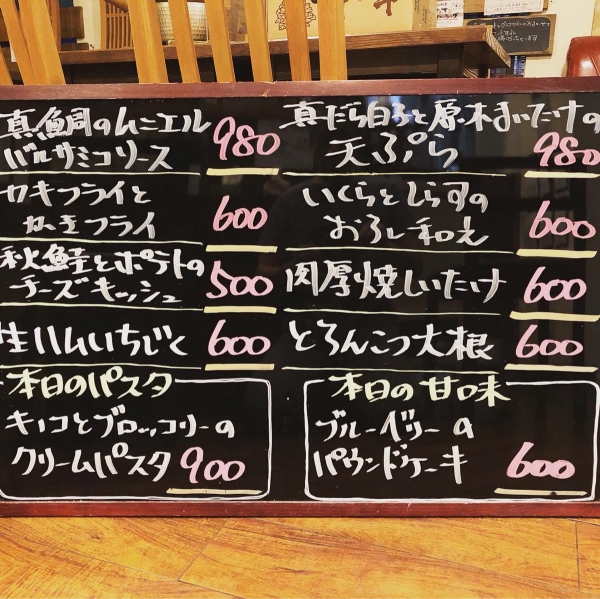 真鯛のムニエル
バルサミコソース 980
カキフライと
かきフライ 600
秋鮭とポテトの
チーズキッシュ 500
生ハムいちじく 600
本日のパスタ
キノコとブロッコリーの
クリームパスタ 900
真だら白子と原木まいたけの
天ぷら 980
いくらとしらすの
おろし和え 600
肉厚焼しいたけ 600
とろんこつ大根 600
本日の甘味
ブルーベリーの
パウンドケーキ 600